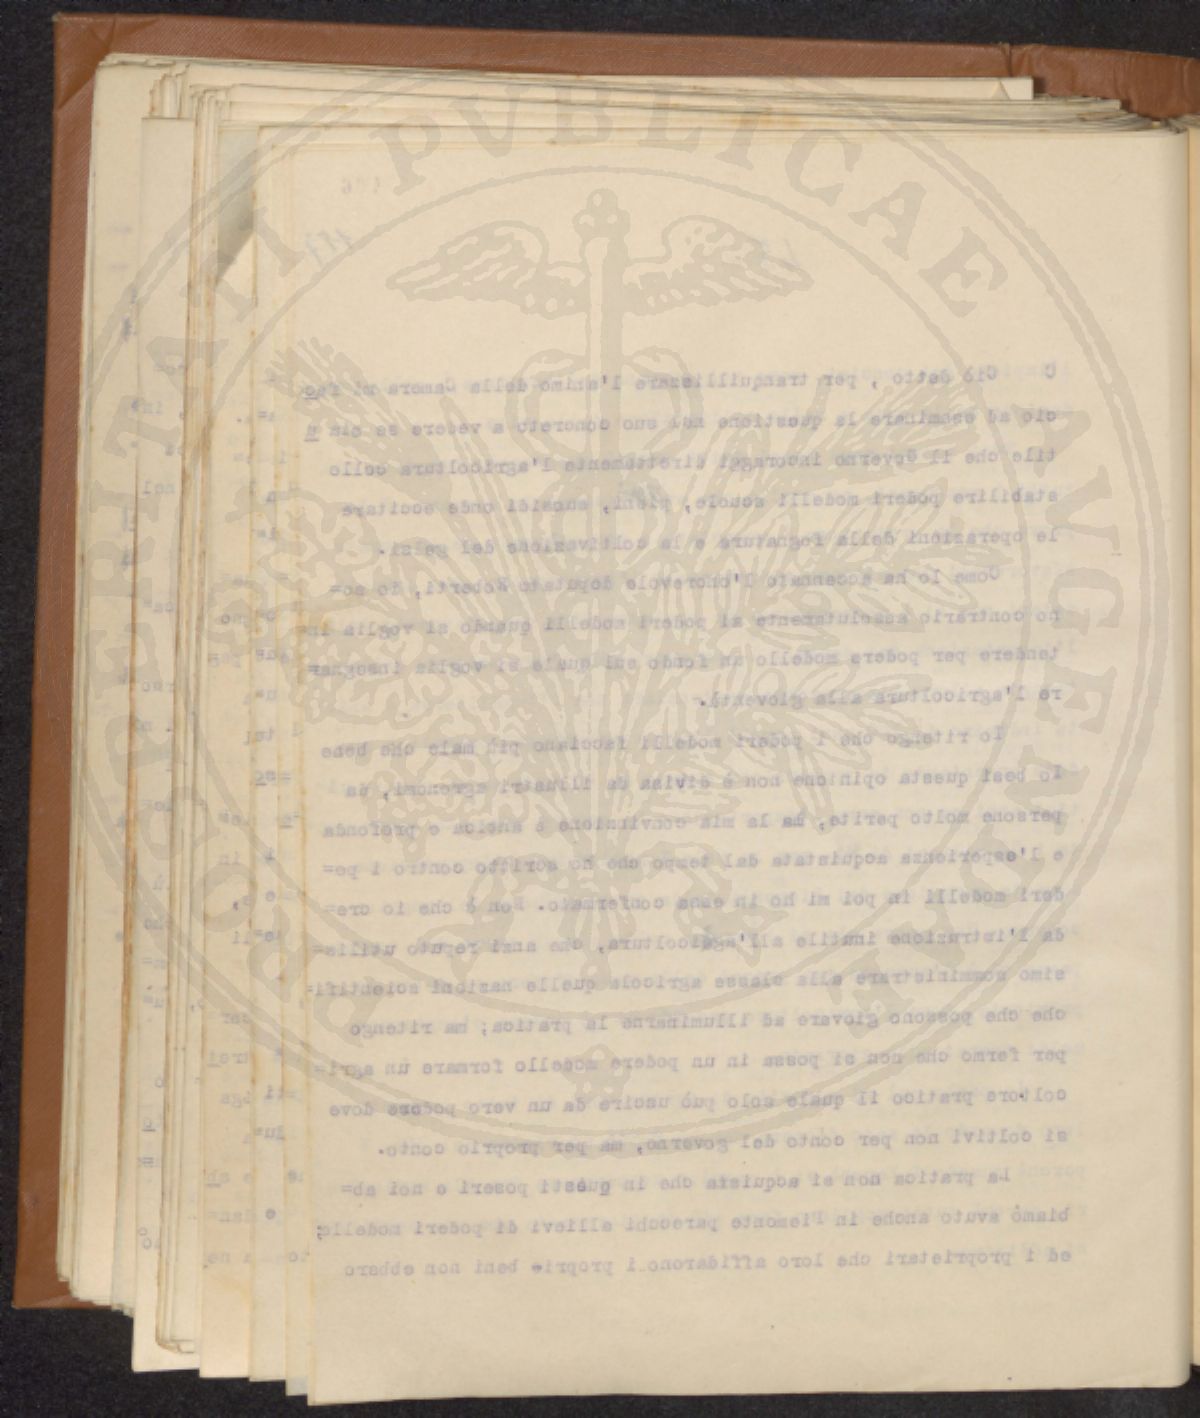 C Ciò detto , per tranquillizzare l'animo della Camera mi fac
cio ad esaminare la questione nel suo concreto a vedere se sia u
tile che il Governo incoraggi direttamente l'agricoltura collo
stabilire poderi modelli scuole, pieni, sussidi onde eccitare
le operazioni della fognatura e la coltivazione dei gelsi.
Come lo ha accennato l'onorevole deputato Roberti, io so=
no contrario assolutamente ai poderi modelli quando si voglia in=
tendere per podere modello un fondo sul quale si voglia insegna=
re l'agricoltura alla gioventù.
Io ritengo che i poderi modelli facciano più male che bene
Io besi questa opinione non è divisa da illustri agronomi, da
persone molto perite, ma la mia convinzione è antica e profonda
e l'esperienza acquistata dal tempo che ho scritto contro i po=
deri modelli in poi mi ho in essa confermato. Non è che io cre=
da l'istruzione inutile all'agricoltura, che anzi reputo utilis=
simo somministrare alla classe agricola quelle nazioni scientifi=
che che possono giovare ad illuminarne la pratica; ma ritengo
per fermo che non si possa in un podere modello formare un agri=
coltore pratico il quale solo può uscire da un vero podere dove
si coltivi non per conto del governo, ma per proprio conto.
La pratica non si acquista che in questi poseri e noi ab=
biamo avuto anche in Piemonte parecchi allievi di poderi modello;
ed i proprietari che loro affidarono i proprie beni non ebbero
PROSPERITATI PUBLICAE AVGENDAE